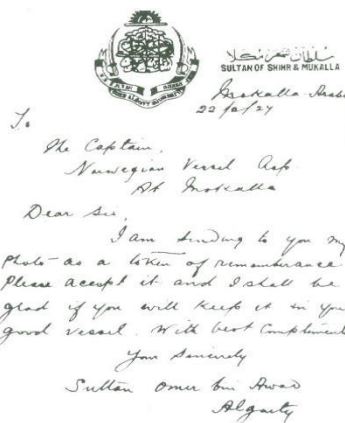 سلطان شحر مكلا
SULTAN OF SHIHR & MUKALLA
Mokalla Arabi
To
The Captain,
Norwegian Vessel
At Mokalla
Dear Sir,
I am sending to you my
photo as a token of rememberance
Please accept it and I shall be
glad if you will keep it in you
good vessel. With best Compliment
Your Sincerely
Sultan Omer bin Awad
Algaity